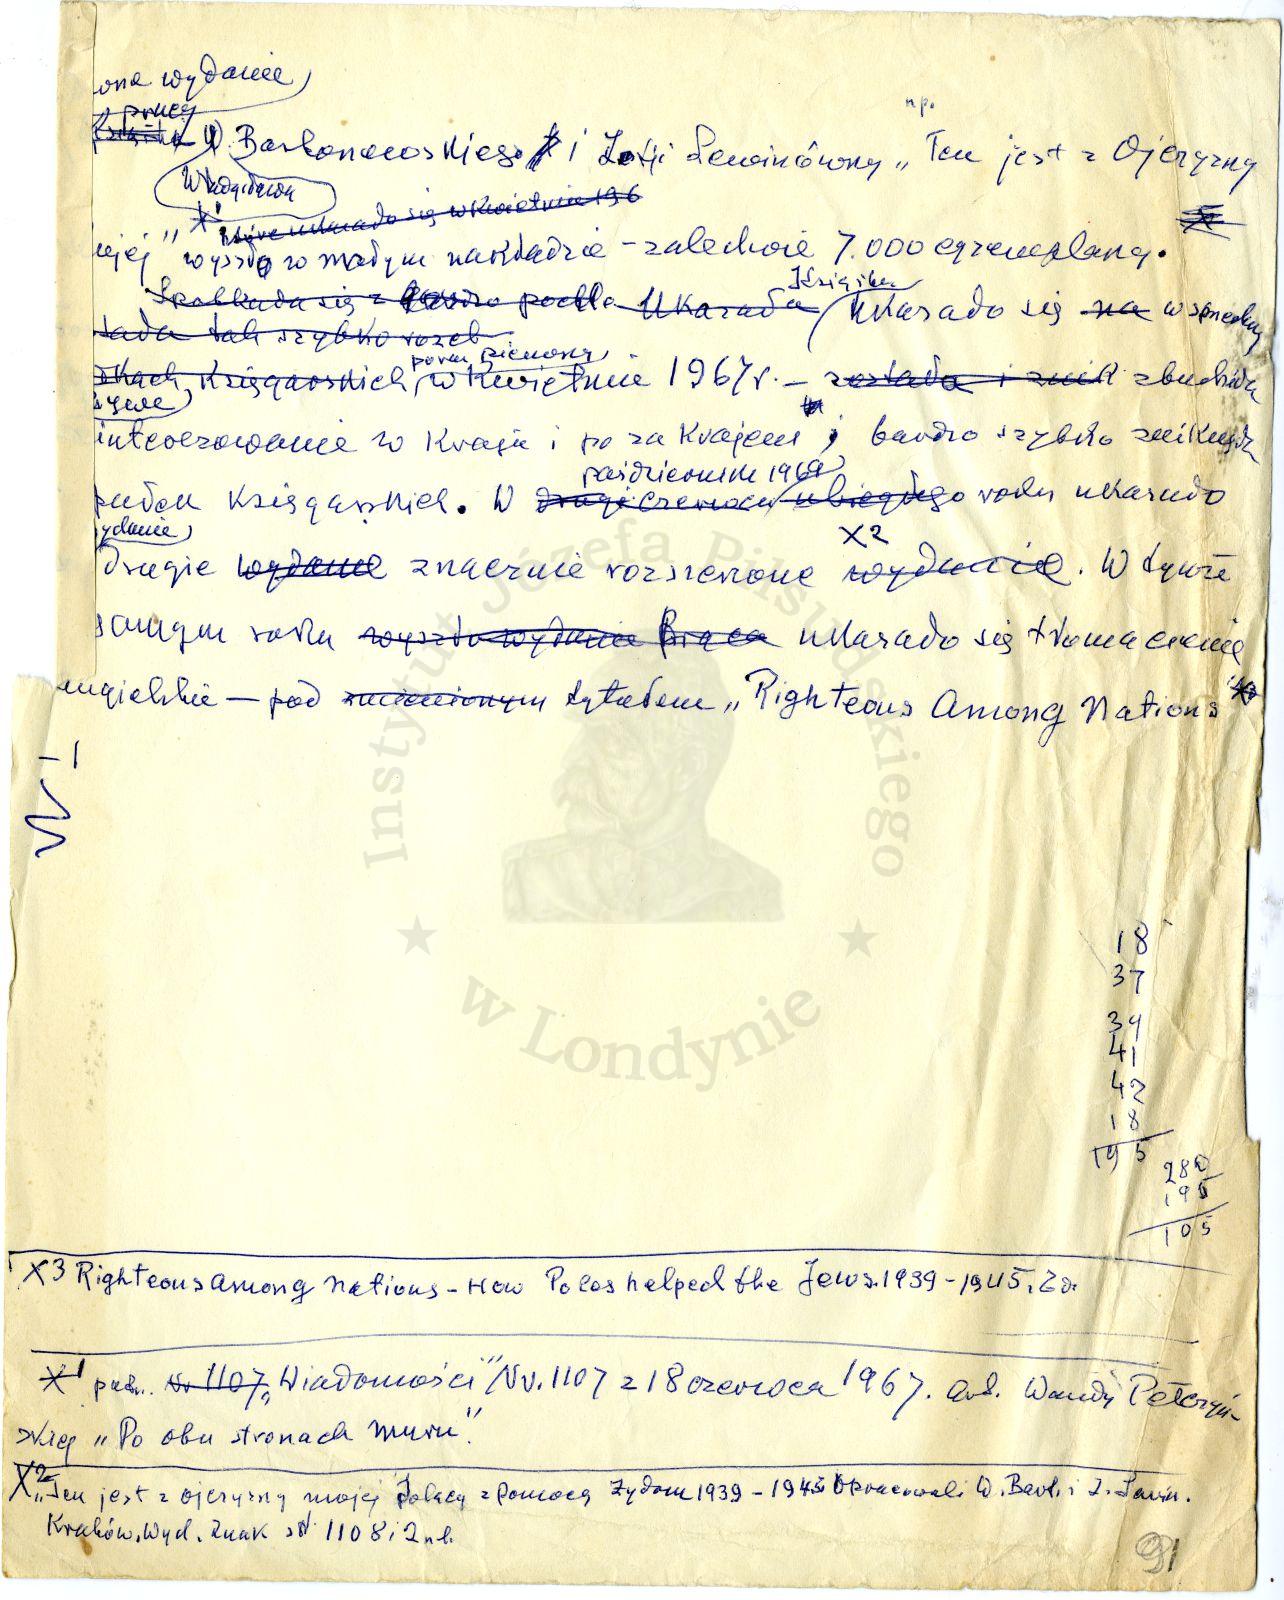 one wydanie
pracy
np.
W. Bartoszewskiego i Zofji Lewinówny „Ten jest z Ojczyzny
Władysława
mojej" x1 ukazało się w kwietniu 196
wyszło w małym nakładzie – zaledwie 7.000 egzemplarzy.
Książka
ukazała ukazało się na w sprzeda
tała tak szybko rozeb
poraz pierwszy
księgarskich, w kwietniu 1967 r. – została i znik zbudziła
interezowanie w kraju i poza krajem, bardzo szybko zniknęła
październiku 1969
pułek księgarskich. W czerwcu ubiegłego roku ukazało
ydanie
x2
drugie wydanie znacznie rozszerzone wydanie. W tymże
samym roku wyszło wydanie praca ukazało się tłomaczenie
angielskie – pod zmienionym tytułem „Righteous Among Nations"
Instytut Józefa Piłsudskiego
w Londynie
18
37
39
41
42
18
195
280
195
105
X3 Righteous among nations – How Poles helped the Jews. 1939 – 1945.
x1 Nr 1107 „Wiadomości" Nr. 1107 z 18 czerwca 1967. art. Wandy Pełczyń-
skiej „Po obu stronach muru".
X2 „Ten jest z ojczyzny mojej Polacy z pomocą Żydom 1939 – 1945 Opracowali W. Bart. i Z. Lewin.
Kraków. Wyd. Znak str 1108 i 2 nl.
91